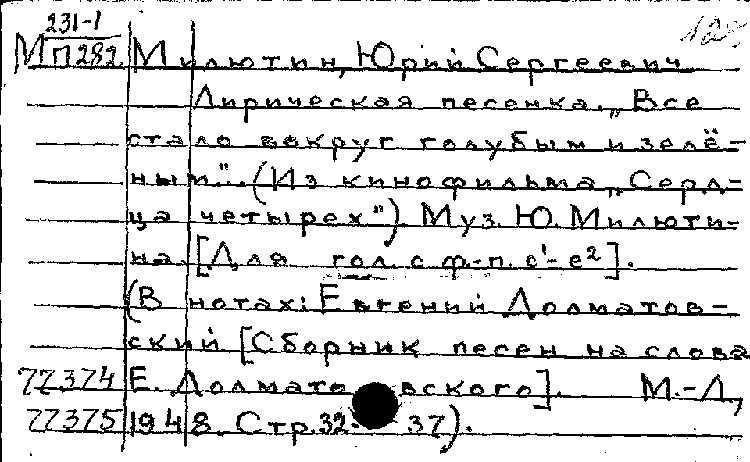 231-1
МП282. Милютин, Юрий Сергеевич
Лирическая песенка. „Все
стало вокруг голубым и зелё-
ным"... (Из кинофильма „Серд-
ца четырех") Муз. Ю. Милюти-
на. [Для гол. с ф-п. c¹-e²].
(В нотах: Евгений Долматов-
ский [Сборник песен на слова
77374 Е. Долматовского]. М.-Л,
77375 1948. Стр. 32-37).